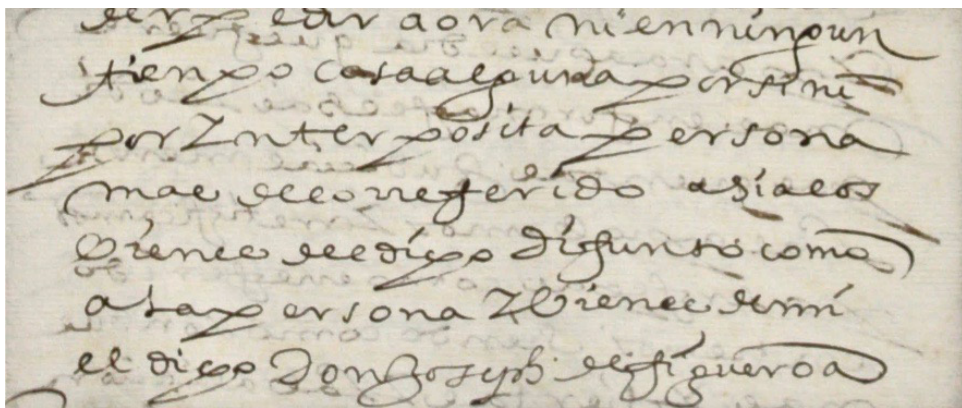 der pedir aora ni en ningun
tienpo cosa alguna por si ni
por Ynterposita persona
mas de lo referido asi a los
Vienes del dicho difunto como
a la persona Y Vienes de mi
el dicho Don Joseph de figueroa